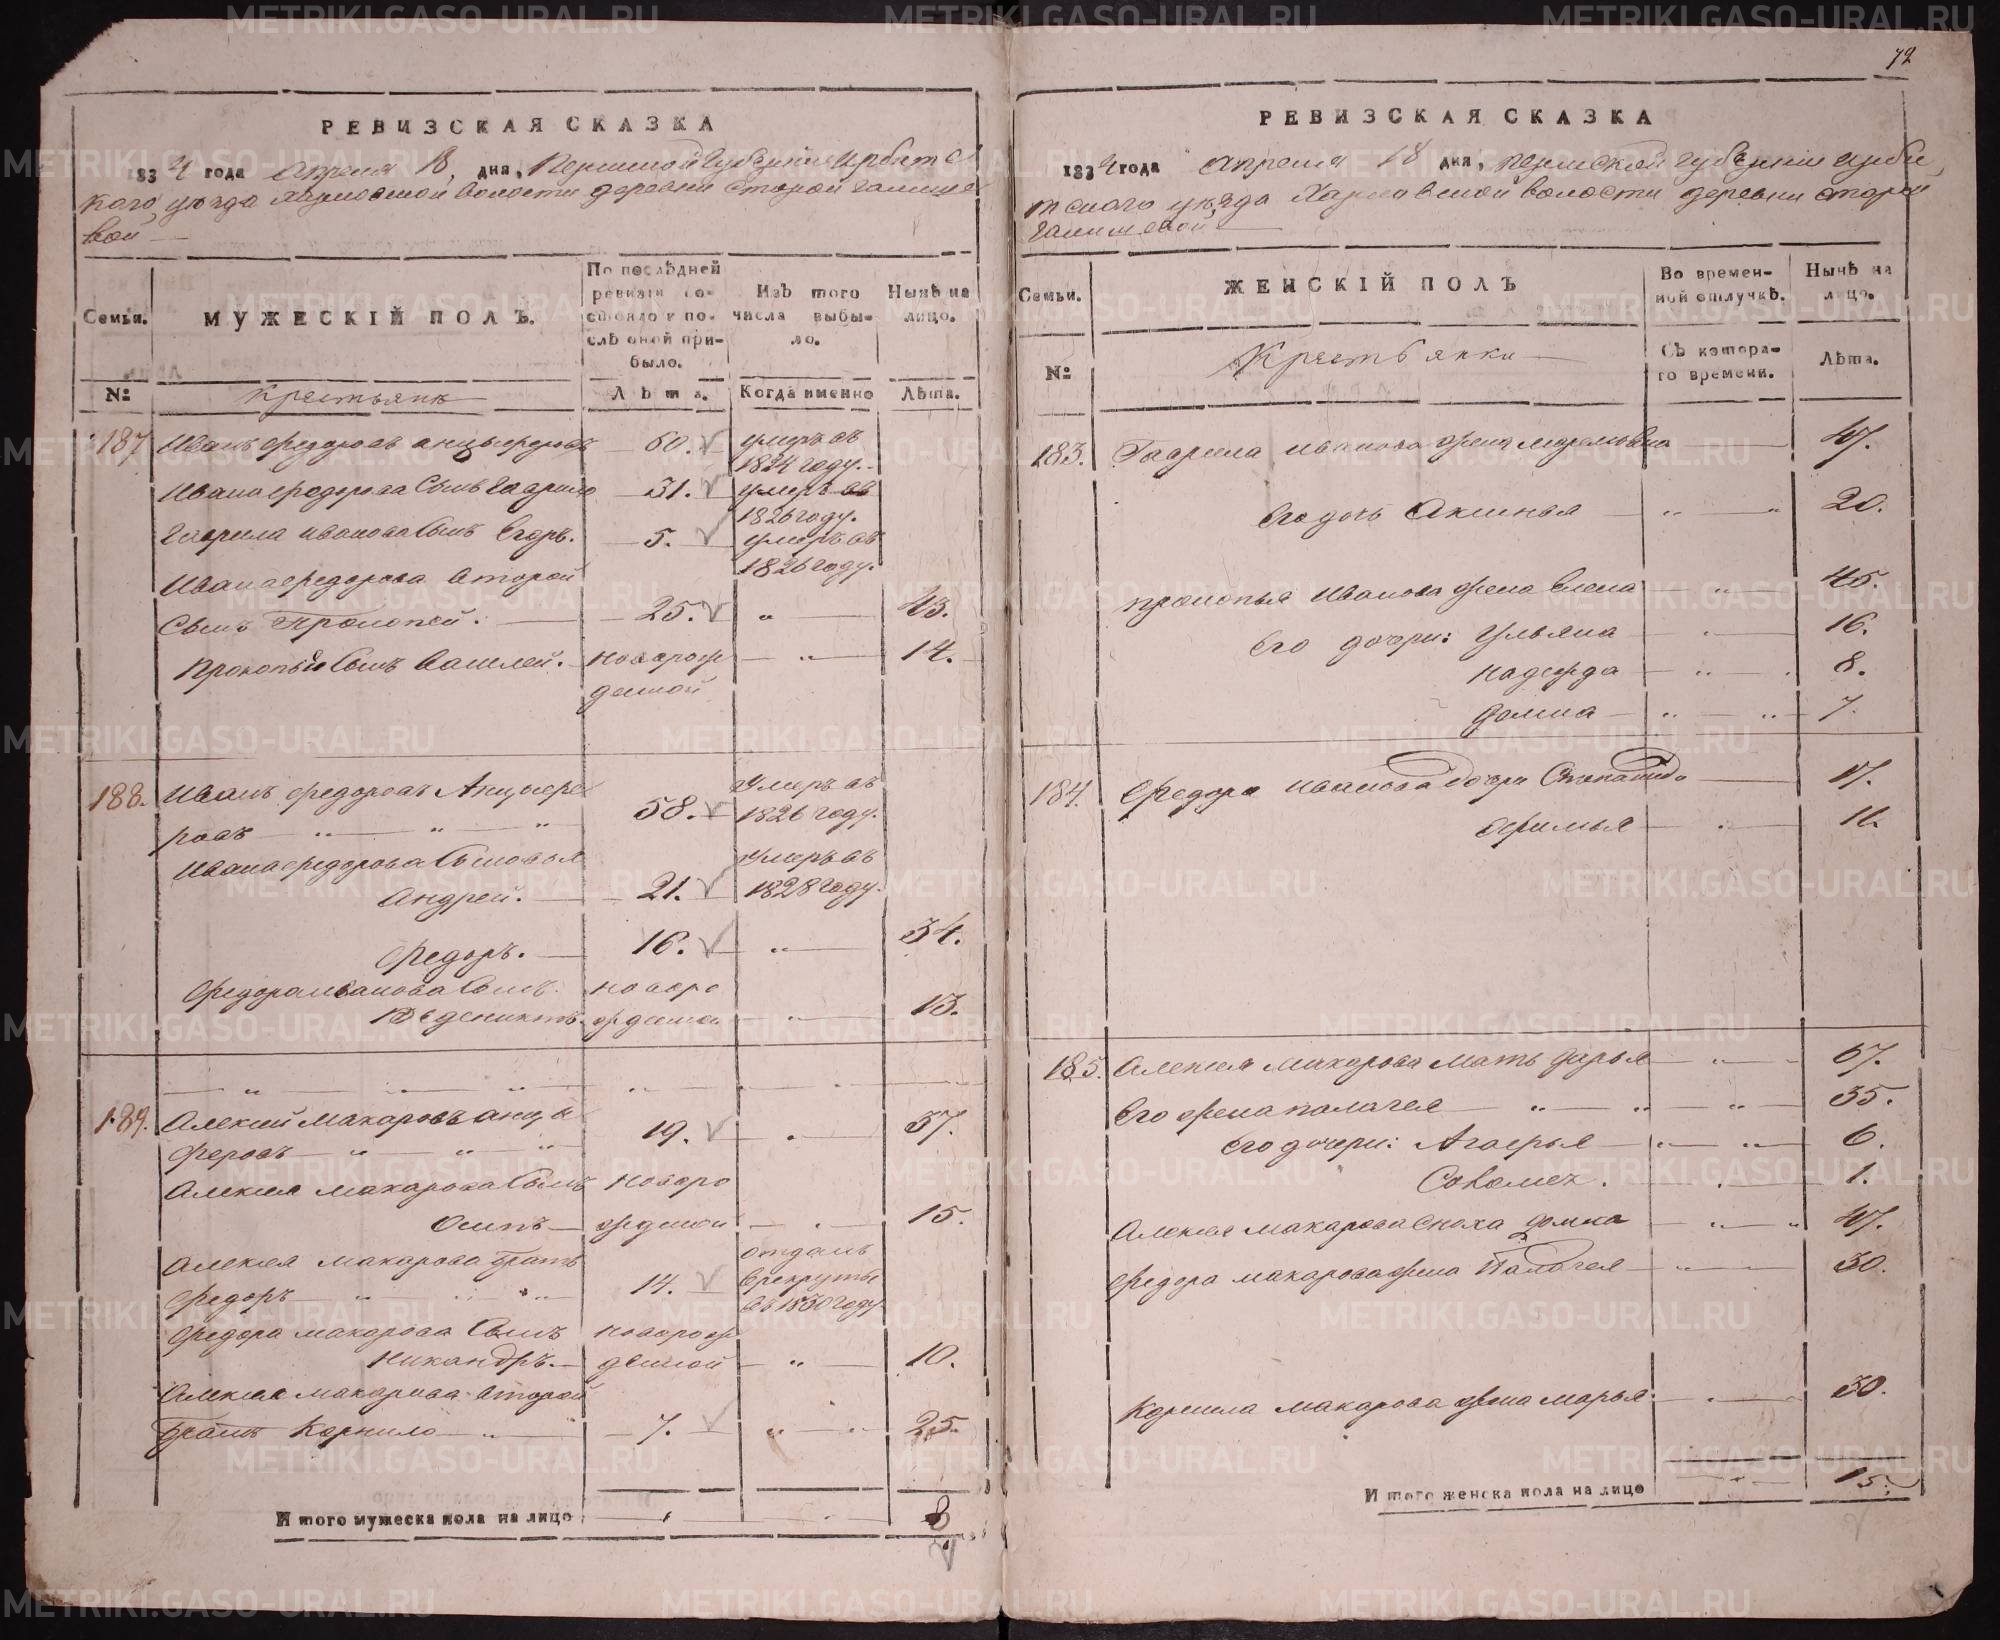 72
РЕВИЗСКАЯ СКАЗКА
1834 года Апреля 18, дня, Пермской Губернии Ирбитс
кого уезда Харловской волости деревни старой
вой
Семьи.
МУЖЕСКІЙ ПОЛЪ.
По послѣдней ревизіи состояло и послѣ оной прибыло.
Изъ того числа выбыло.
Нынѣ на лицо.
№
Крестьяне
Лѣта.
Когда именно
Лѣта.
187 Иванъ федоровъ анцыферовъ 60. умеръ въ 1824 году.
Ивана федорова Сынъ Гаврило 31. умеръ въ 1826 году.
Гаврила иванова Сынъ Егоръ. 5. умеръ въ 1826 году.
Ивана федорова второй
Сынъ Прокопей. 25. „ 43.
Прокопья Сынъ Василей. новорож „ 14.
денной
188. Иванъ федоровъ Анцыфе Умеръ въ
ровъ 58. 1826 году.
Ивана федорова Сыновья Умеръ въ
Андрей. 21. 1828 году.
Федоръ. 16. „ 34.
Федора иванова Сынъ новоро
Веденихтъ ждена. „ 13.
189. Алексей Макаровъ анцы
феровъ 19. „ 37.
Алексея макарова Сынъ новоро
Осипъ жденой „ 15.
Алексея макарова братъ отданъ
федоръ 14. в рекруты
въ 1830 году
Федора макарова Сынъ новорож
Никандръ. денной „ 10.
Алексея макарова второй
братъ Корнило 7. „ 25.
Итого мужеска пола на лицо 8
РЕВИЗСКАЯ СКАЗКА
1834 года Апреля 18 дня, пермской губернии ирби
тского уезда Харловской волости деревни старой
Семьи.
ЖЕНСКІЙ ПОЛЪ
Во временной отлучкѣ.
Нынѣ на лицо.
№
Крестьянки
Съ котораго времени.
Лѣта.
183. Гаврила иванова жена 47.
Его дочь Аксинья „ „ 20.
прокопья Иванова жена Елена „ 45.
Его дочери: Ульяна „ 16.
надежда „ 8.
домна „ „ 7.
184. Федора Иванова дочери Степанида 17.
афимья „ 11.
185. Алексея Макарова Мать дарья „ 67.
Его жена палагея „ „ „ 35.
Его дочери: Агафья „ „ 6.
1.
Алексея макарова сноха домна „ „ 47.
Федора макарова жена Палагея „ 30.
Корнила макарова жена марья „ 30.
Итого женска пола на лицо „ 15.
METRIKI.GASO-URAL.RU